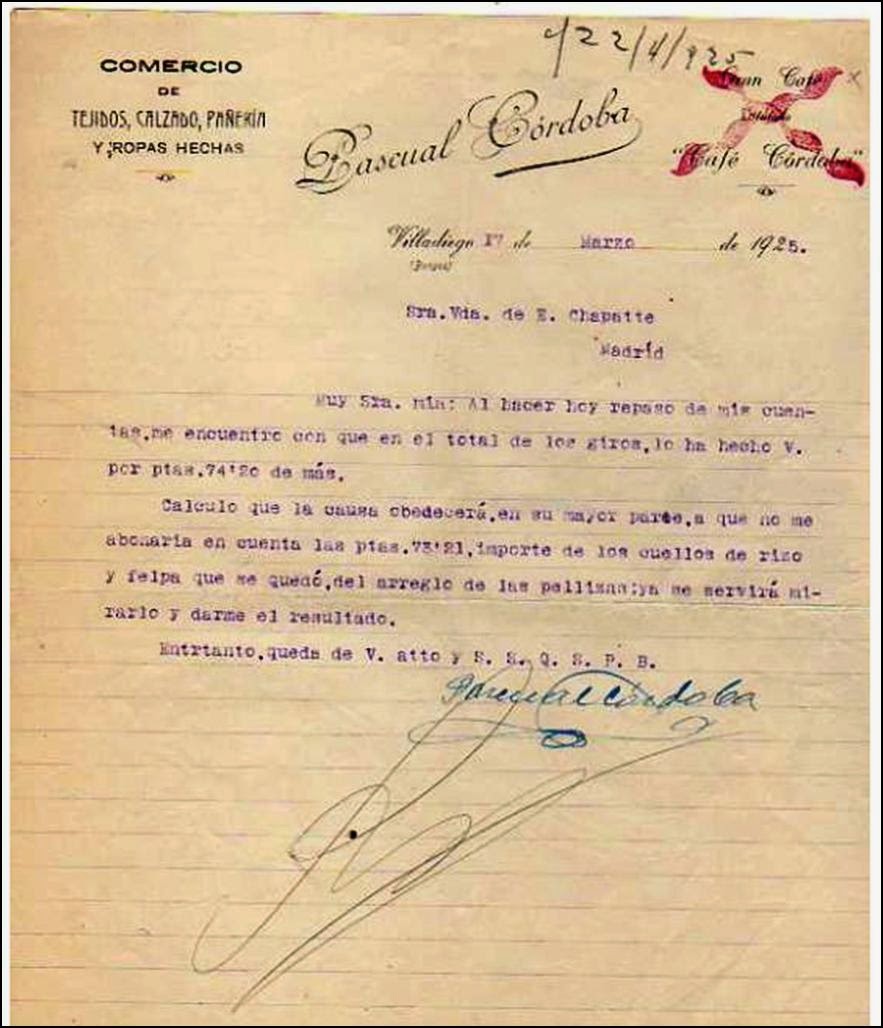 c/ 22/4/925
COMERCIO
DE
TEJIDOS, CALZADO, PAÑERÍA
Y ROPAS HECHAS
Pascual Córdoba
Gran Café
Titulado
"Café Córdoba"
Villadiego 17 de Marzo de 1925.
(Burgos)
Sra.Vda. de E. Chapatte
Madrid
Muy Sra. mia: Al hacer hoy repaso de mis cuen-
tas,me encuentro con que en el total de los giros,lo ha hecho V.
por ptas.74'20 de más.
Calculo que la causa obedecerá,en su mayor parte,a que no me
abonaria en cuenta las ptas.73'21,importe de los cuellos de rizo
y felpa que se quedó,del arreglo de las pellizas:ya se servirá mi-
rarlo y darme el resultado.
Entrtanto,queda de V. atto y S. S. Q. S. P. B.
Pascual Córdoba